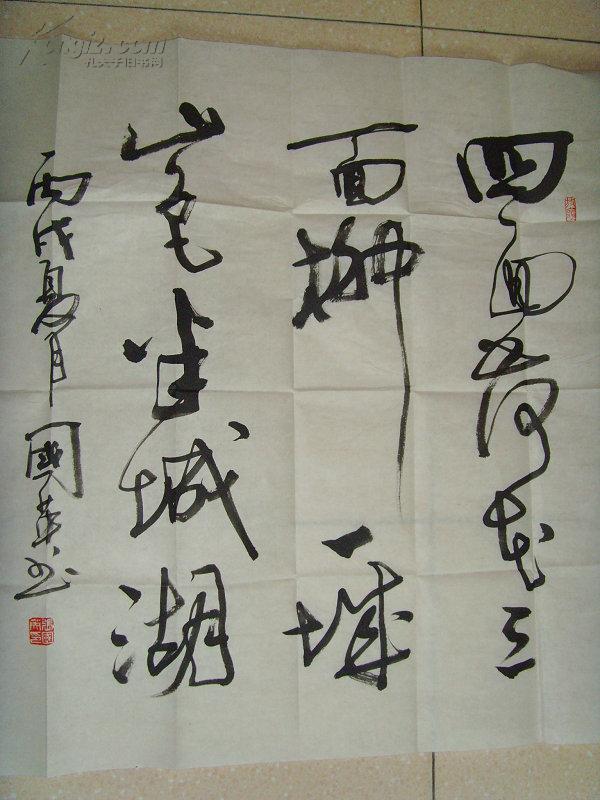 四面荷花三
面柳一城
山色半城湖
丙戌夏月國華书
孔夫子旧书网